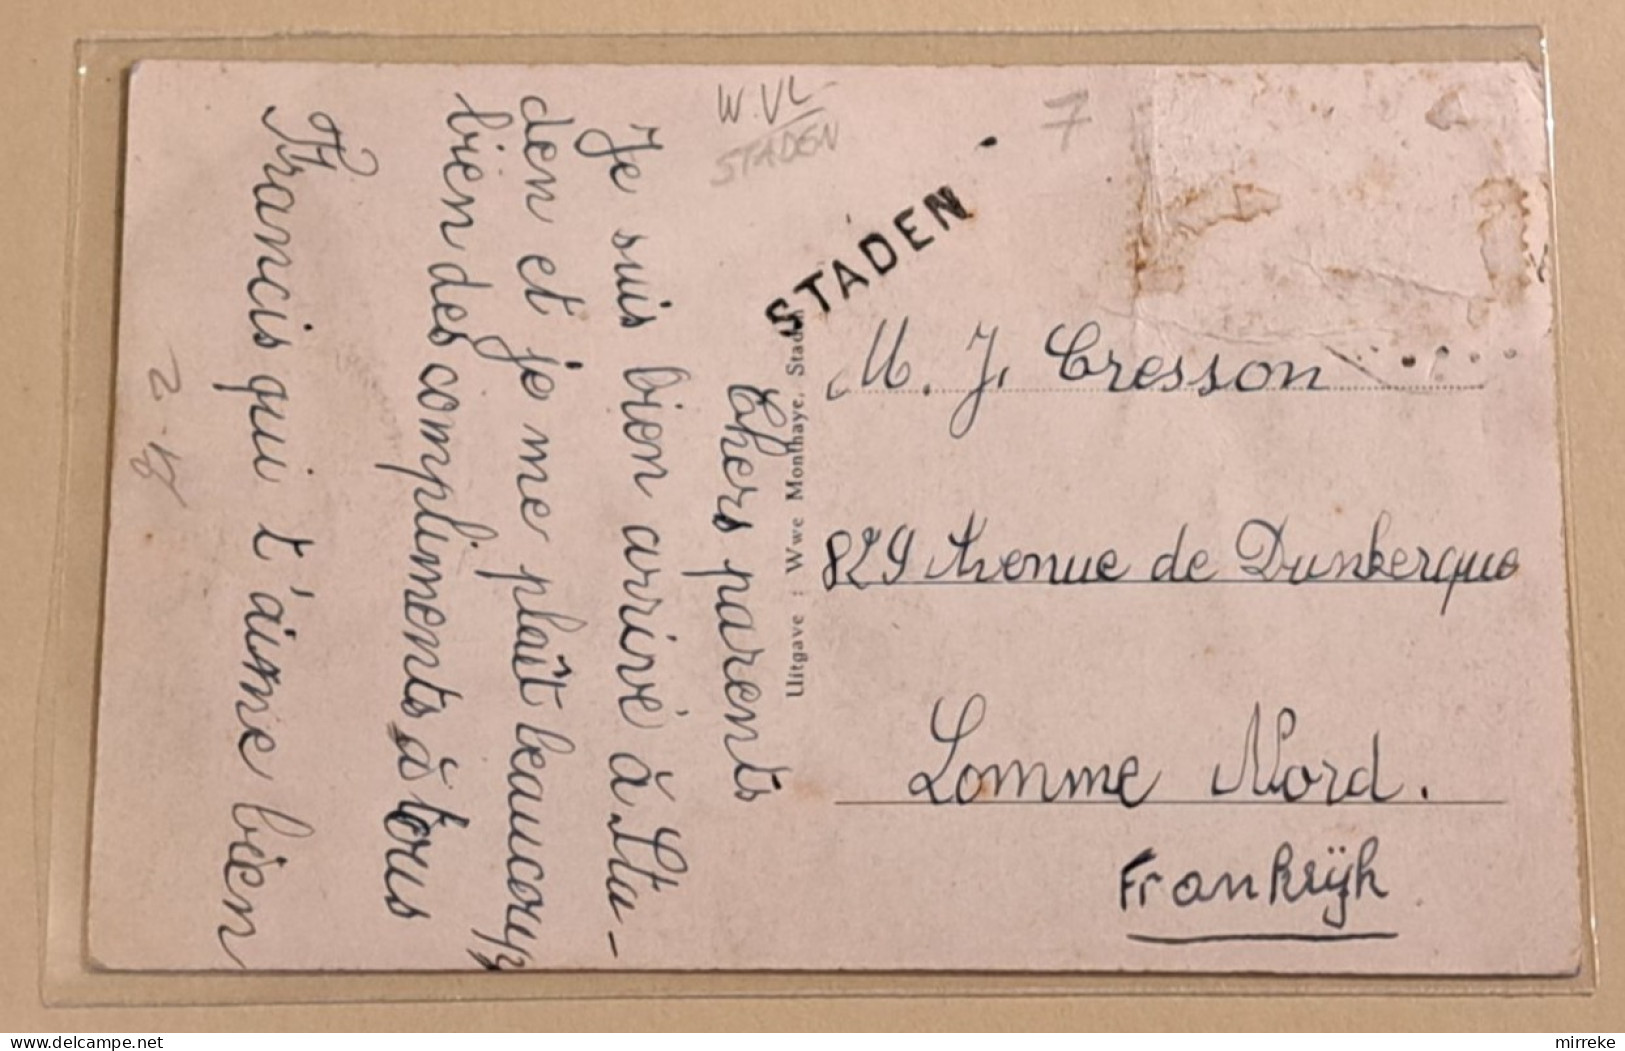 W.VL
STADEN
7
STADEN
Chers parents
Je suis bien arrivé à Sta-
den et je me plaît beaucoup
bien des compliments à tous
Francis qui t'aime bien
Uitgave : Wwe Monthaye, Staden
M. J. Cresson
829 Avenue de Dunkerque
Lomme Nord.
Frankrijk
delcampe.net
mirreke